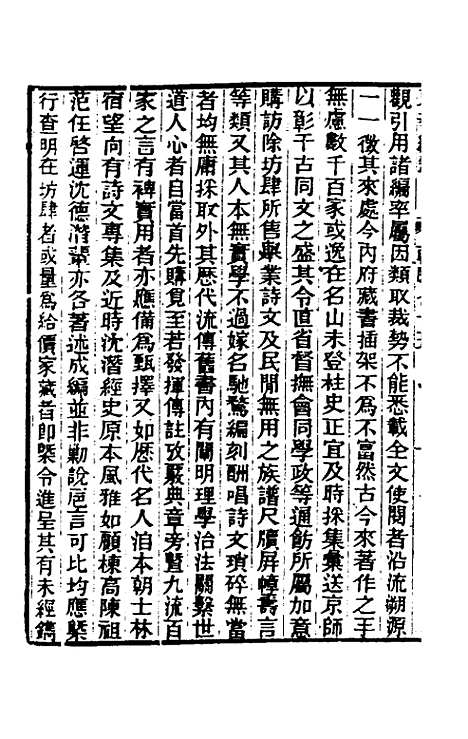 觀引用諸編率屬因類取裁勢不能悉載全文使閱者沿流溯源
一一徵其來處今內府藏書插架不為不富然古今來著作之手
無慮數千百家或逸在名山未登柱史正宜及時採集彙送京師
以彰千古同文之盛其令直省督撫會同學政等通飭所屬加意
購訪除坊肆所售舉業詩文及民間無用之族譜尺牘屏幛壽言
等類又其人本無實學不過嫁名馳騖編刻酬唱詩文瑣碎無當
者均無庸採取外其歷代流傳舊書內有闡明理學治法關繫世
道人心者自當首先購覓至若發揮傳註攷覈典章旁暨九流百
家之言有裨實用者亦應備為甄擇又如歷代名人洎本朝士林
宿望向有詩文專集及近時沈潛經史原本風雅如顧棟高陳祖
范任啓運沈德潛輩亦各著述成編並非勦說巵言可比均應槩
行查明在坊肆者或量為給價家藏者即槩令進呈其有未經鐫